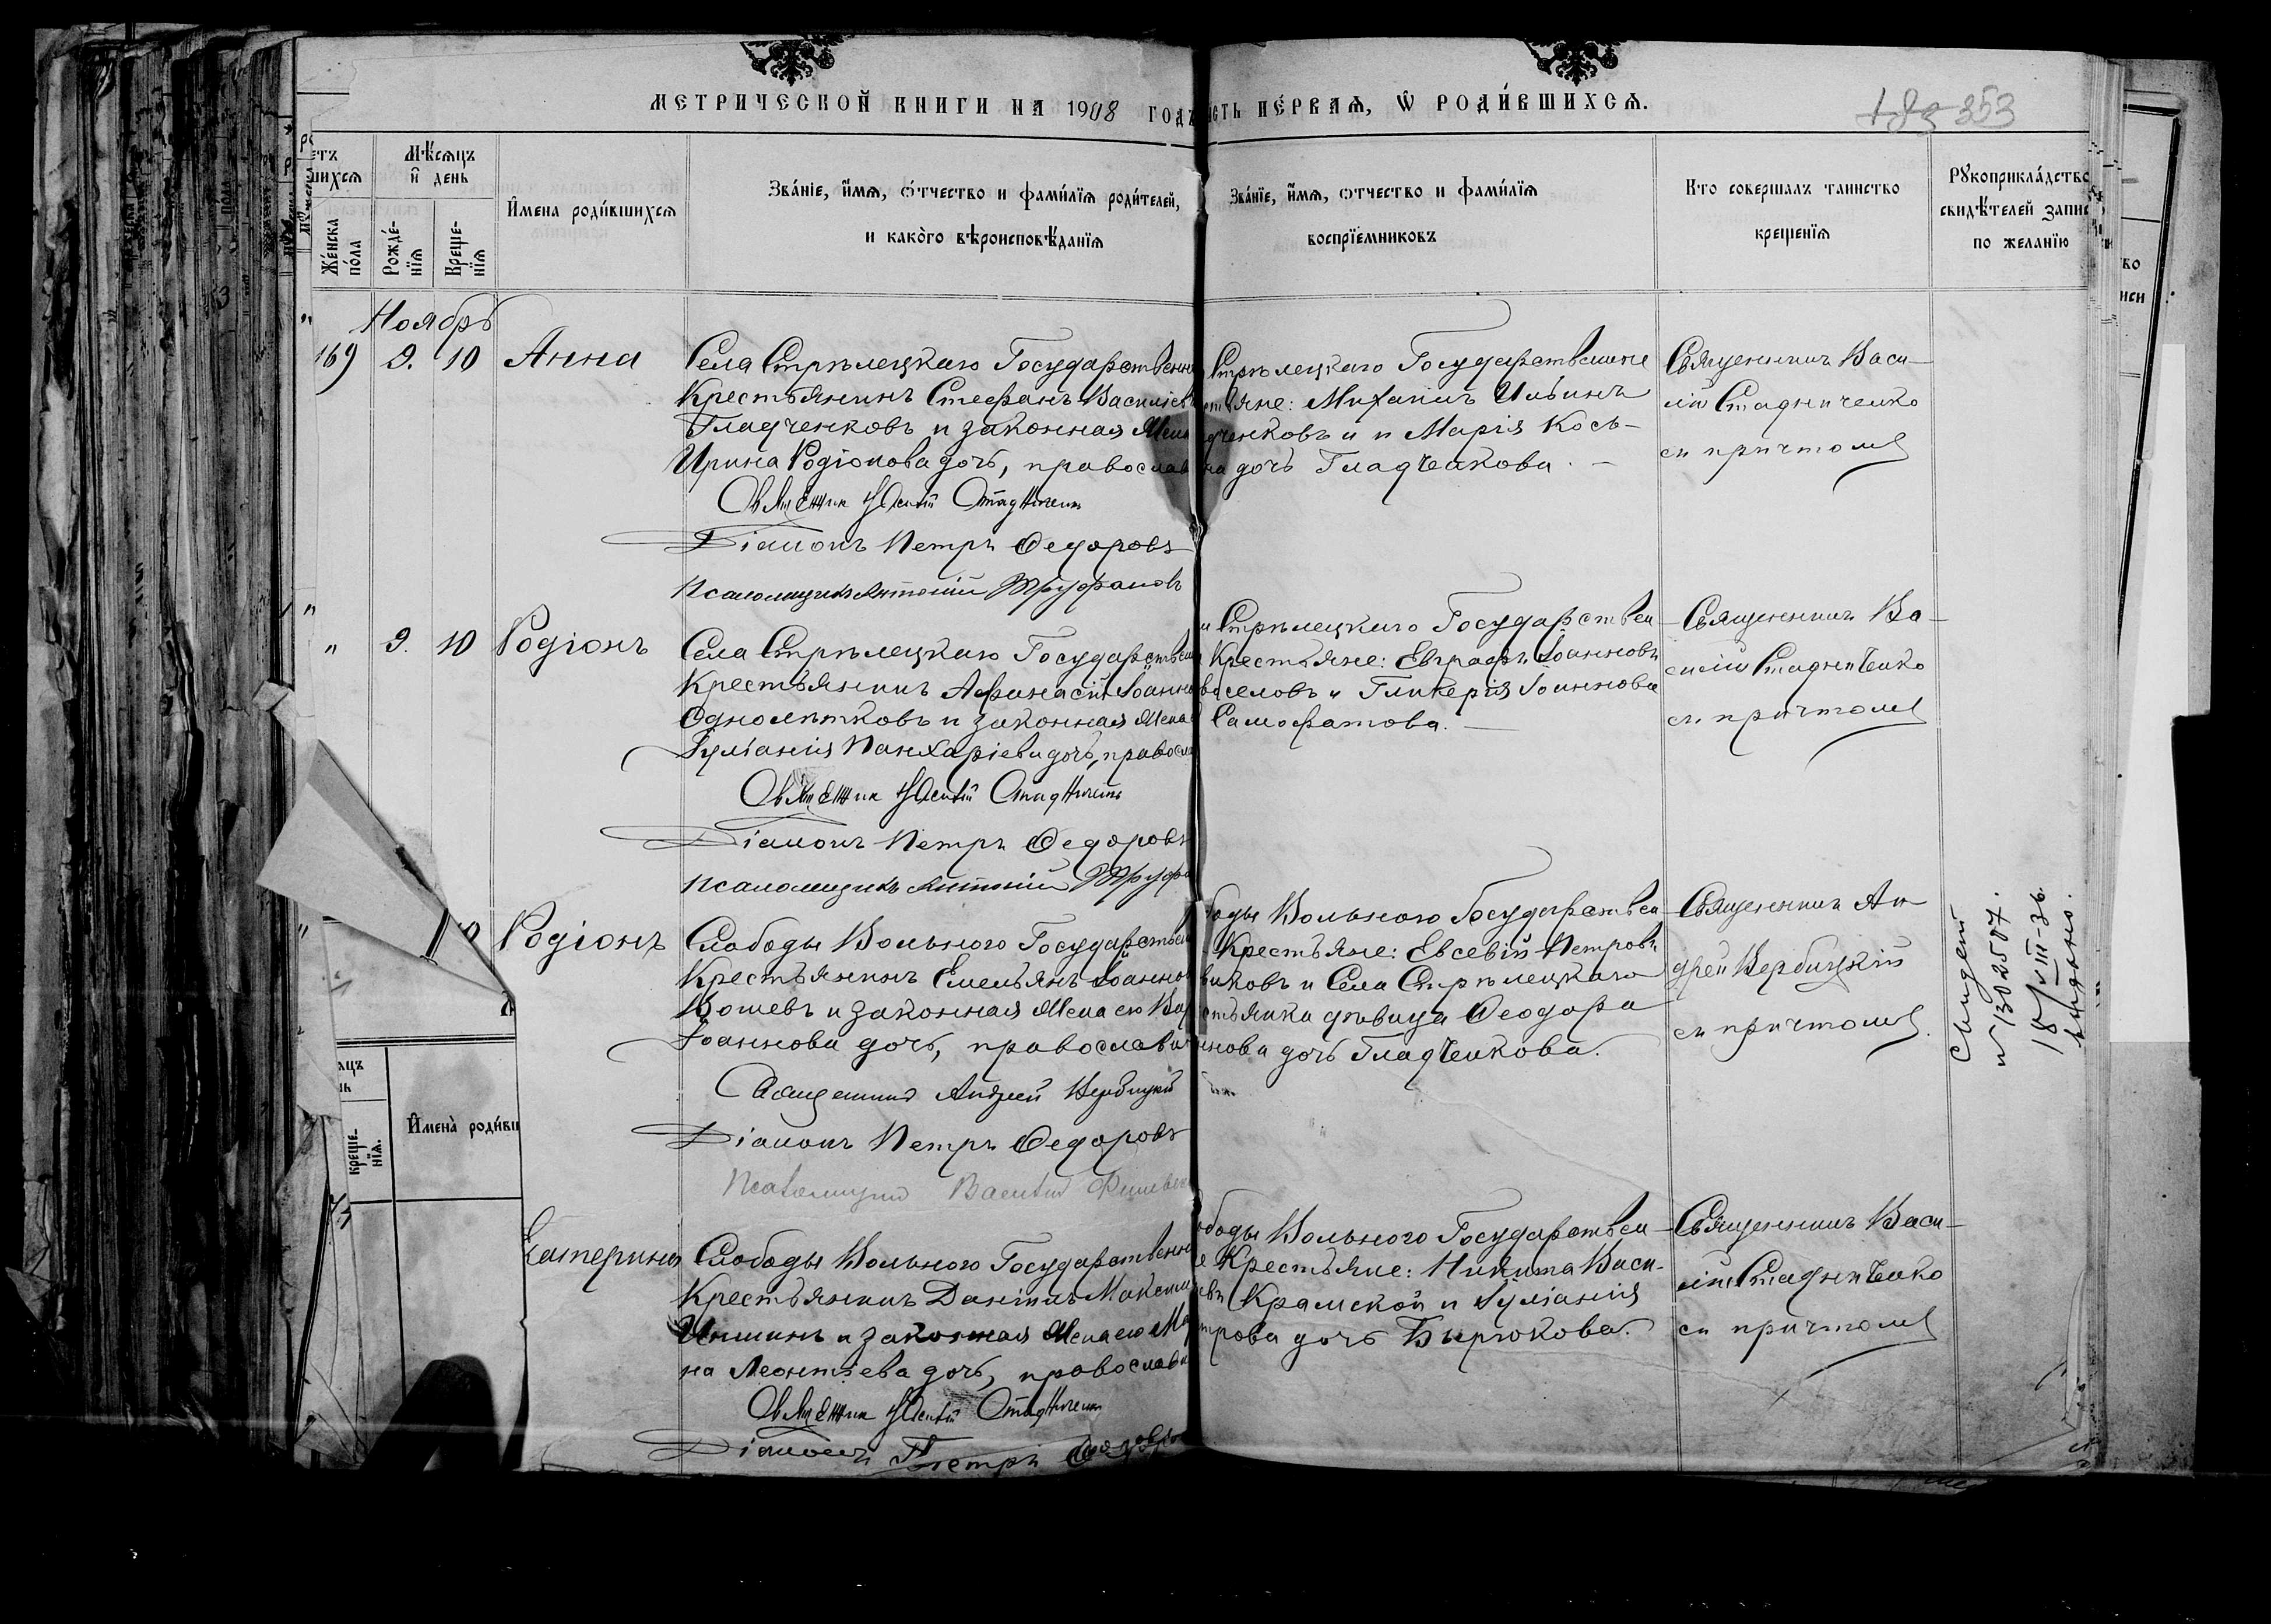 МЕТРИЧЕСКОЙ КНИГИ НА 1908 ГОДЪ
ЧАСТЬ ПЕРВАЯ, Ѿ РОДИВШИХСЯ.
353
Мѣсяцъ и день
Женска пола
Рожденія
Крещенія
Имена родившихся
Званіе, имя, отчество и фамилія родителей,
и какого вѣроисповѣданія
Званіе, имя, отчество и фамилія
воспріемниковъ
Кто совершалъ таинство
крещенія
Рукоприкладство
свидѣтелей записи
по желанію
Ноябрь
169 9. 10 Анна
Села Стрѣлецкаго Государственн
Крестьянинъ Стефанъ Василіев
Гладченковъ и законная жена
Ирина Родіонова дочь, православ
Священник Василій Стадниченк
Діаконъ Петръ Федоровъ
Псаломщикъ Антоній Труфановъ
Стрѣлецкаго Государственные
стьяне: Михаилъ Ильинъ
дченковъ и Марія Кось-
на дочь Гладченкова.
Священникъ Васи-
лій Стадниченко
съ причтомъ
" 9. 10 Родіонъ
Села Стрѣлецкаго Государствен
Крестьянинъ Афанасій Іоанно
Однолѣтковъ и законная жена
Іуліанія Панхаріева дочь, правосл
Священник Василій Стадниченк
Діаконъ Петръ Федоровъ
Псаломщикъ Антоній Труфа
Стрѣлецкаго Государствен-
Крестьяне: Евграфъ Іоанновъ
селовъ и Гликерія Іоаннова
Самофатова.
Священникъ Ва-
силій Стадниченко
съ причтомъ
Родіонъ
Слободы Вольного Государствен
Крестьянинъ Емельянъ Іоанно
Кошевъ и законная жена его Вар
Іоаннова дочь, православн
Священникъ Андрей Вербицкій
Діаконъ Петръ Федоровъ
Псаломщикъ Василій
боды Вольного Государствен-
Крестьяне: Евсевій Петровъ
виковъ и Села Стрѣлецкаго
стьянка дѣвица Феодора
нова дочь Гладченкова.
Священникъ Ан-
дрей Вербицкій
съ причтомъ.
№ 1302507.
18/VIII-36.
выдано.
Екатерина
Слободы Вольного Государственн
Крестьянинъ Даніилъ Максим
и законная жена его Ма
на Леонтіева дочь, православн
Священник Василій Стадниченк
Діаконъ Петръ Федоров
ободы Вольного Государствен-
е Крестьяне: Никита Васи-
евъ Крамской и Іуліанія
трова дочь Бирюкова.
Священникъ Васи-
лій Стадниченко
съ причтомъ
крещенія.
Имена родивш